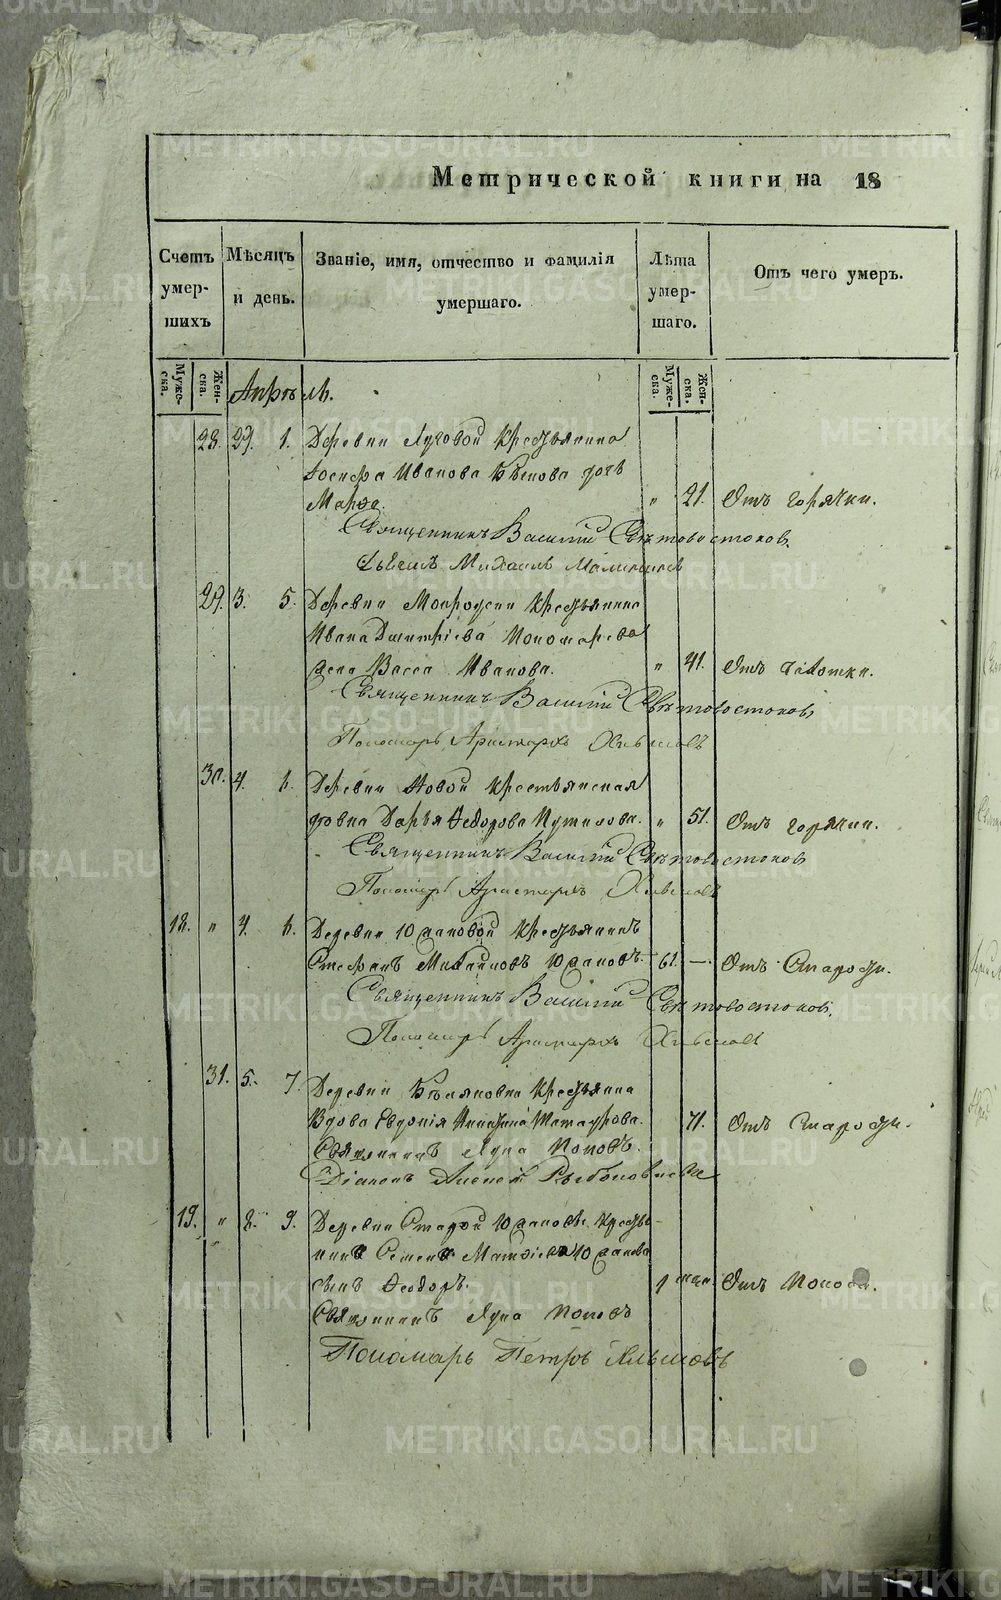 Метрической книги на 18
Счетъ умер- шихъ
Мѣсяцъ и день.
Званіе, имя, отчество и фамилія умершаго.
Лѣта умер- шаго.
Отъ чего умеръ.
Муже- ска.
Жен- ска.
Муже- ска.
Жен- ска.
Апрѣль.
28. 29. 1. Деревни Луговой Крестьянина
Іосифа Иванова дочь
Марѳа. " 21. Отъ горячки.
Священникъ Василій Свѣтовостоковъ.
Михаилъ
29. 3. 5. Деревни Крестьянина
Ивана Димитріева Пономарева
жена Васса Иванова. " 41. Отъ чахотки.
Священникъ Василій Свѣтовостоковъ
Пономарь Аристархъ
30. 4. 6. Деревни Новой Крестьянская
вдова Дарья Ѳедорова Путилова. " 51. Отъ горячки.
Священникъ Василій Свѣтовостоковъ
Пономарь Аристархъ
18. " 4. 6. Деревни Юдановой Крестьянинъ
Стефанъ Михайловъ Юдановъ. 61. — Отъ Старости.
Священникъ Василій Свѣтовостоковъ.
Пономарь Аристархъ
31. 5. 7. Деревни Крестьянка
Вдова Евдокія 71. Отъ Старости.
Священникъ Лука Поповъ.
Діаконъ
19. " 8. 9. Деревни Старой Юдановой Крестья-
нина Семена Матѳіева Юданова
сынъ Ѳеодоръ. 1 Отъ Поноса.
Священникъ Лука Поповъ
Пономарь Петръ
METRIKI.GASO-URAL.RU